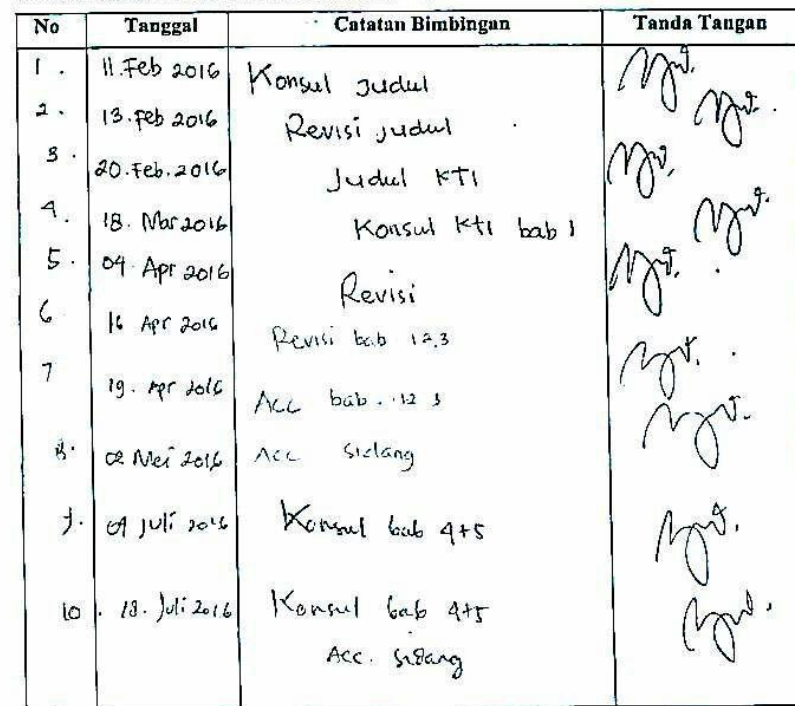 No Tanggal Catatan Bimbingan Tanda Tangan
1. 11. Feb 2016 Konsul Judul
2. 13. Feb 2016 Revisi judul
3. 20. Feb. 2016 Judul KTI
4. 18. Mar 2016 Konsul KTI bab 1
5. 04. Apr 2016 Revisi
6 16 Apr 2016 Revisi bab 1 2,3
7 19. Apr 2016 Acc bab. 12 3
8. 02 Mei 2016 Acc Sidang
9. Juli 2016 Konsul bab 4+5
10. 18. Juli 2016 Konsul bab 4+5
Acc. Sidang